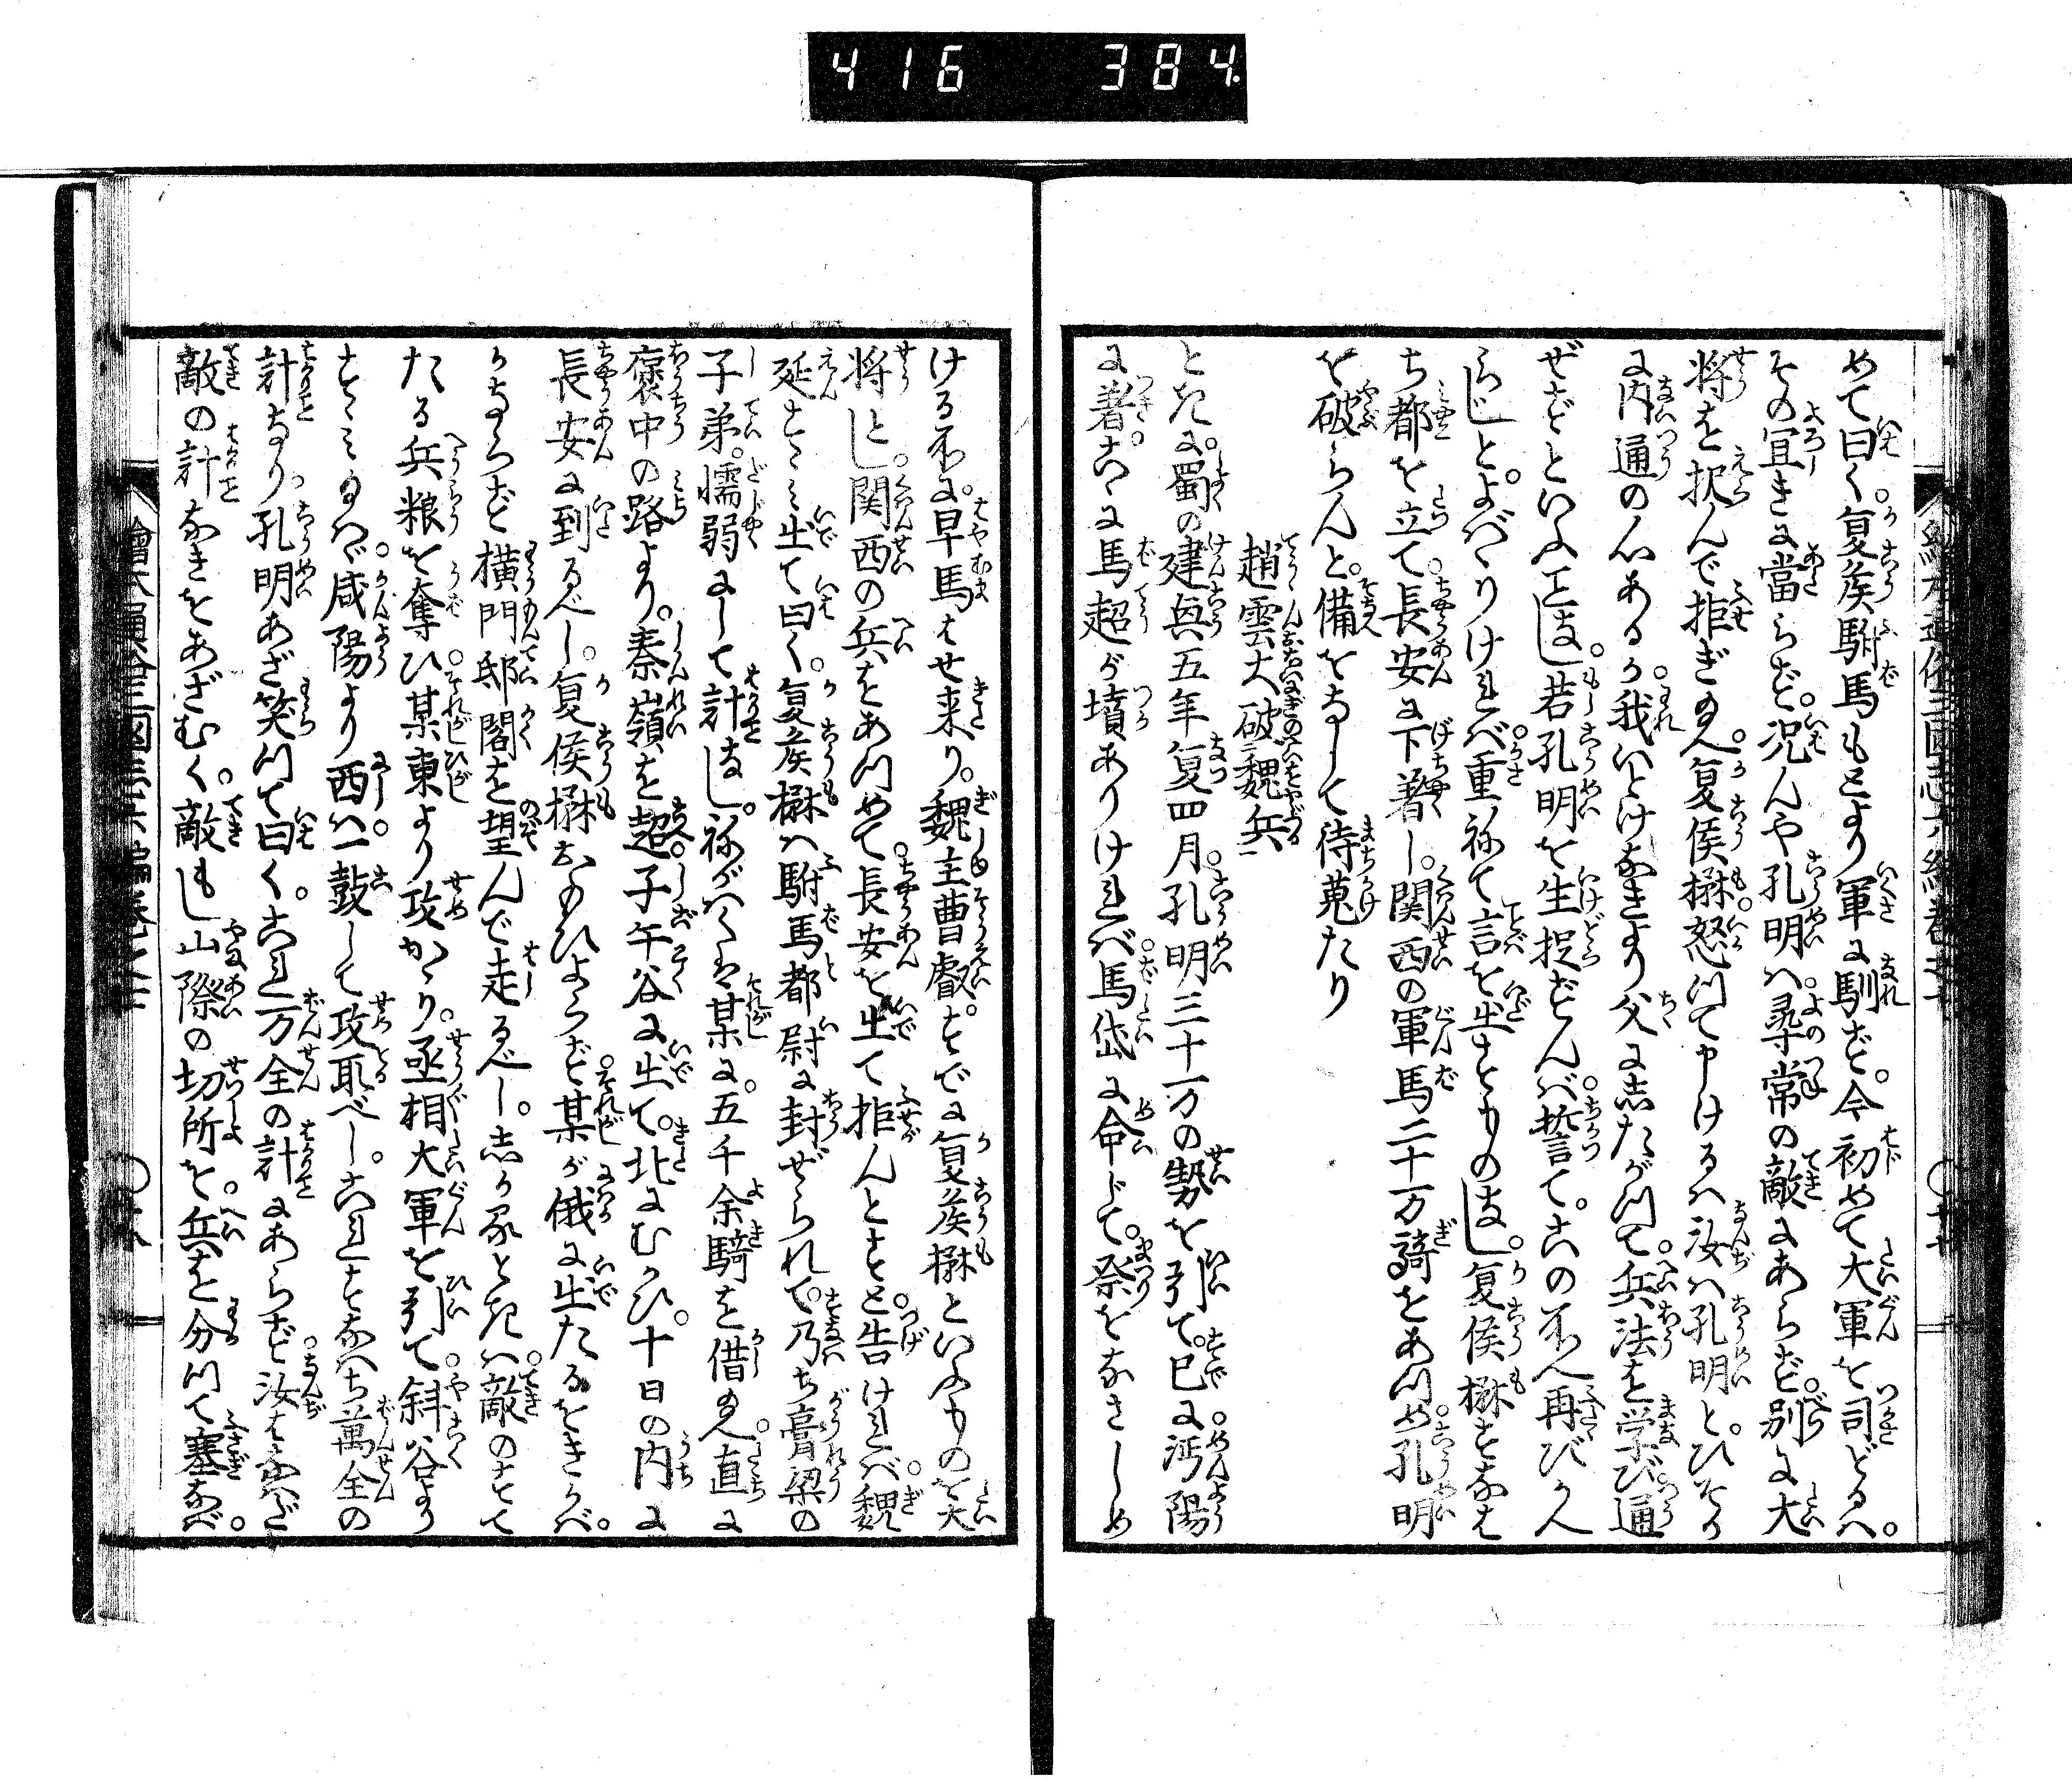 416 384
めて曰く。夏侯駙馬もとより軍に馴ず。今初めて大軍を司どるハ。
その宜きに當らず。况んや孔明ハ。尋常の敵にあらず。別に大
将を択んで拒ぎ玉へ。夏侯楙怒つて申けるハ汝ハ孔明と。ひそか
に内通の心あるか。我いとけなきより父にしたがつて。兵法を学び通
ぜずといふことなし。若孔明を生捉ずんバ誓て。この所へ再びかへ
らじと。よバゝりければ重ねて言を出すものなし。夏侯楙すなハ
ち都を立て。長安に下着し。関西の軍馬二十万騎をあつめ。孔明
を破らんと。備をなして待蒐たり
趙雲大破魏兵
ときに。蜀の建興五年夏四月。孔明三十万の勢を引て。已に沔陽
に着。こゝに馬超が墳ありけれバ。馬岱に命じて。祭をなさしめ
ける所に。早馬はせ来り。魏主曹叡。すでに夏侯楙といふものを大
将とし。関西の兵をあつめて。長安を出て拒んとすと。告けれバ。魏
延すゝミ出て曰く。夏侯楙ハ駙馬都尉に封ぜられて。乃ち膏梁の
子弟。懦弱にして計なし。ねがハくは某に。五千余騎を借玉へ。直に
褒中の路より。秦嶺を超。子午谷に出て。北にむかひ。十日の内に
長安に到るべし。夏侯楙おもひよらず。某が俄に出たるをきかバ。
かならず横門邸閣を望んで走るべし。しかるときハ。敵のすて
たる兵粮を奪ひ。某東より攻かゝり。丞相大軍を引て。斜谷より
すゝミ玉ハゞ。咸陽より西ハ。一鼓して攻取べし。これすなハち萬全の
計なり。孔明あざ笑つて曰く。これ万全の計にあらず。汝はたゞ
敵の計なきをあざむく。敵もし山際の切所を。兵を分つて塞なバ。